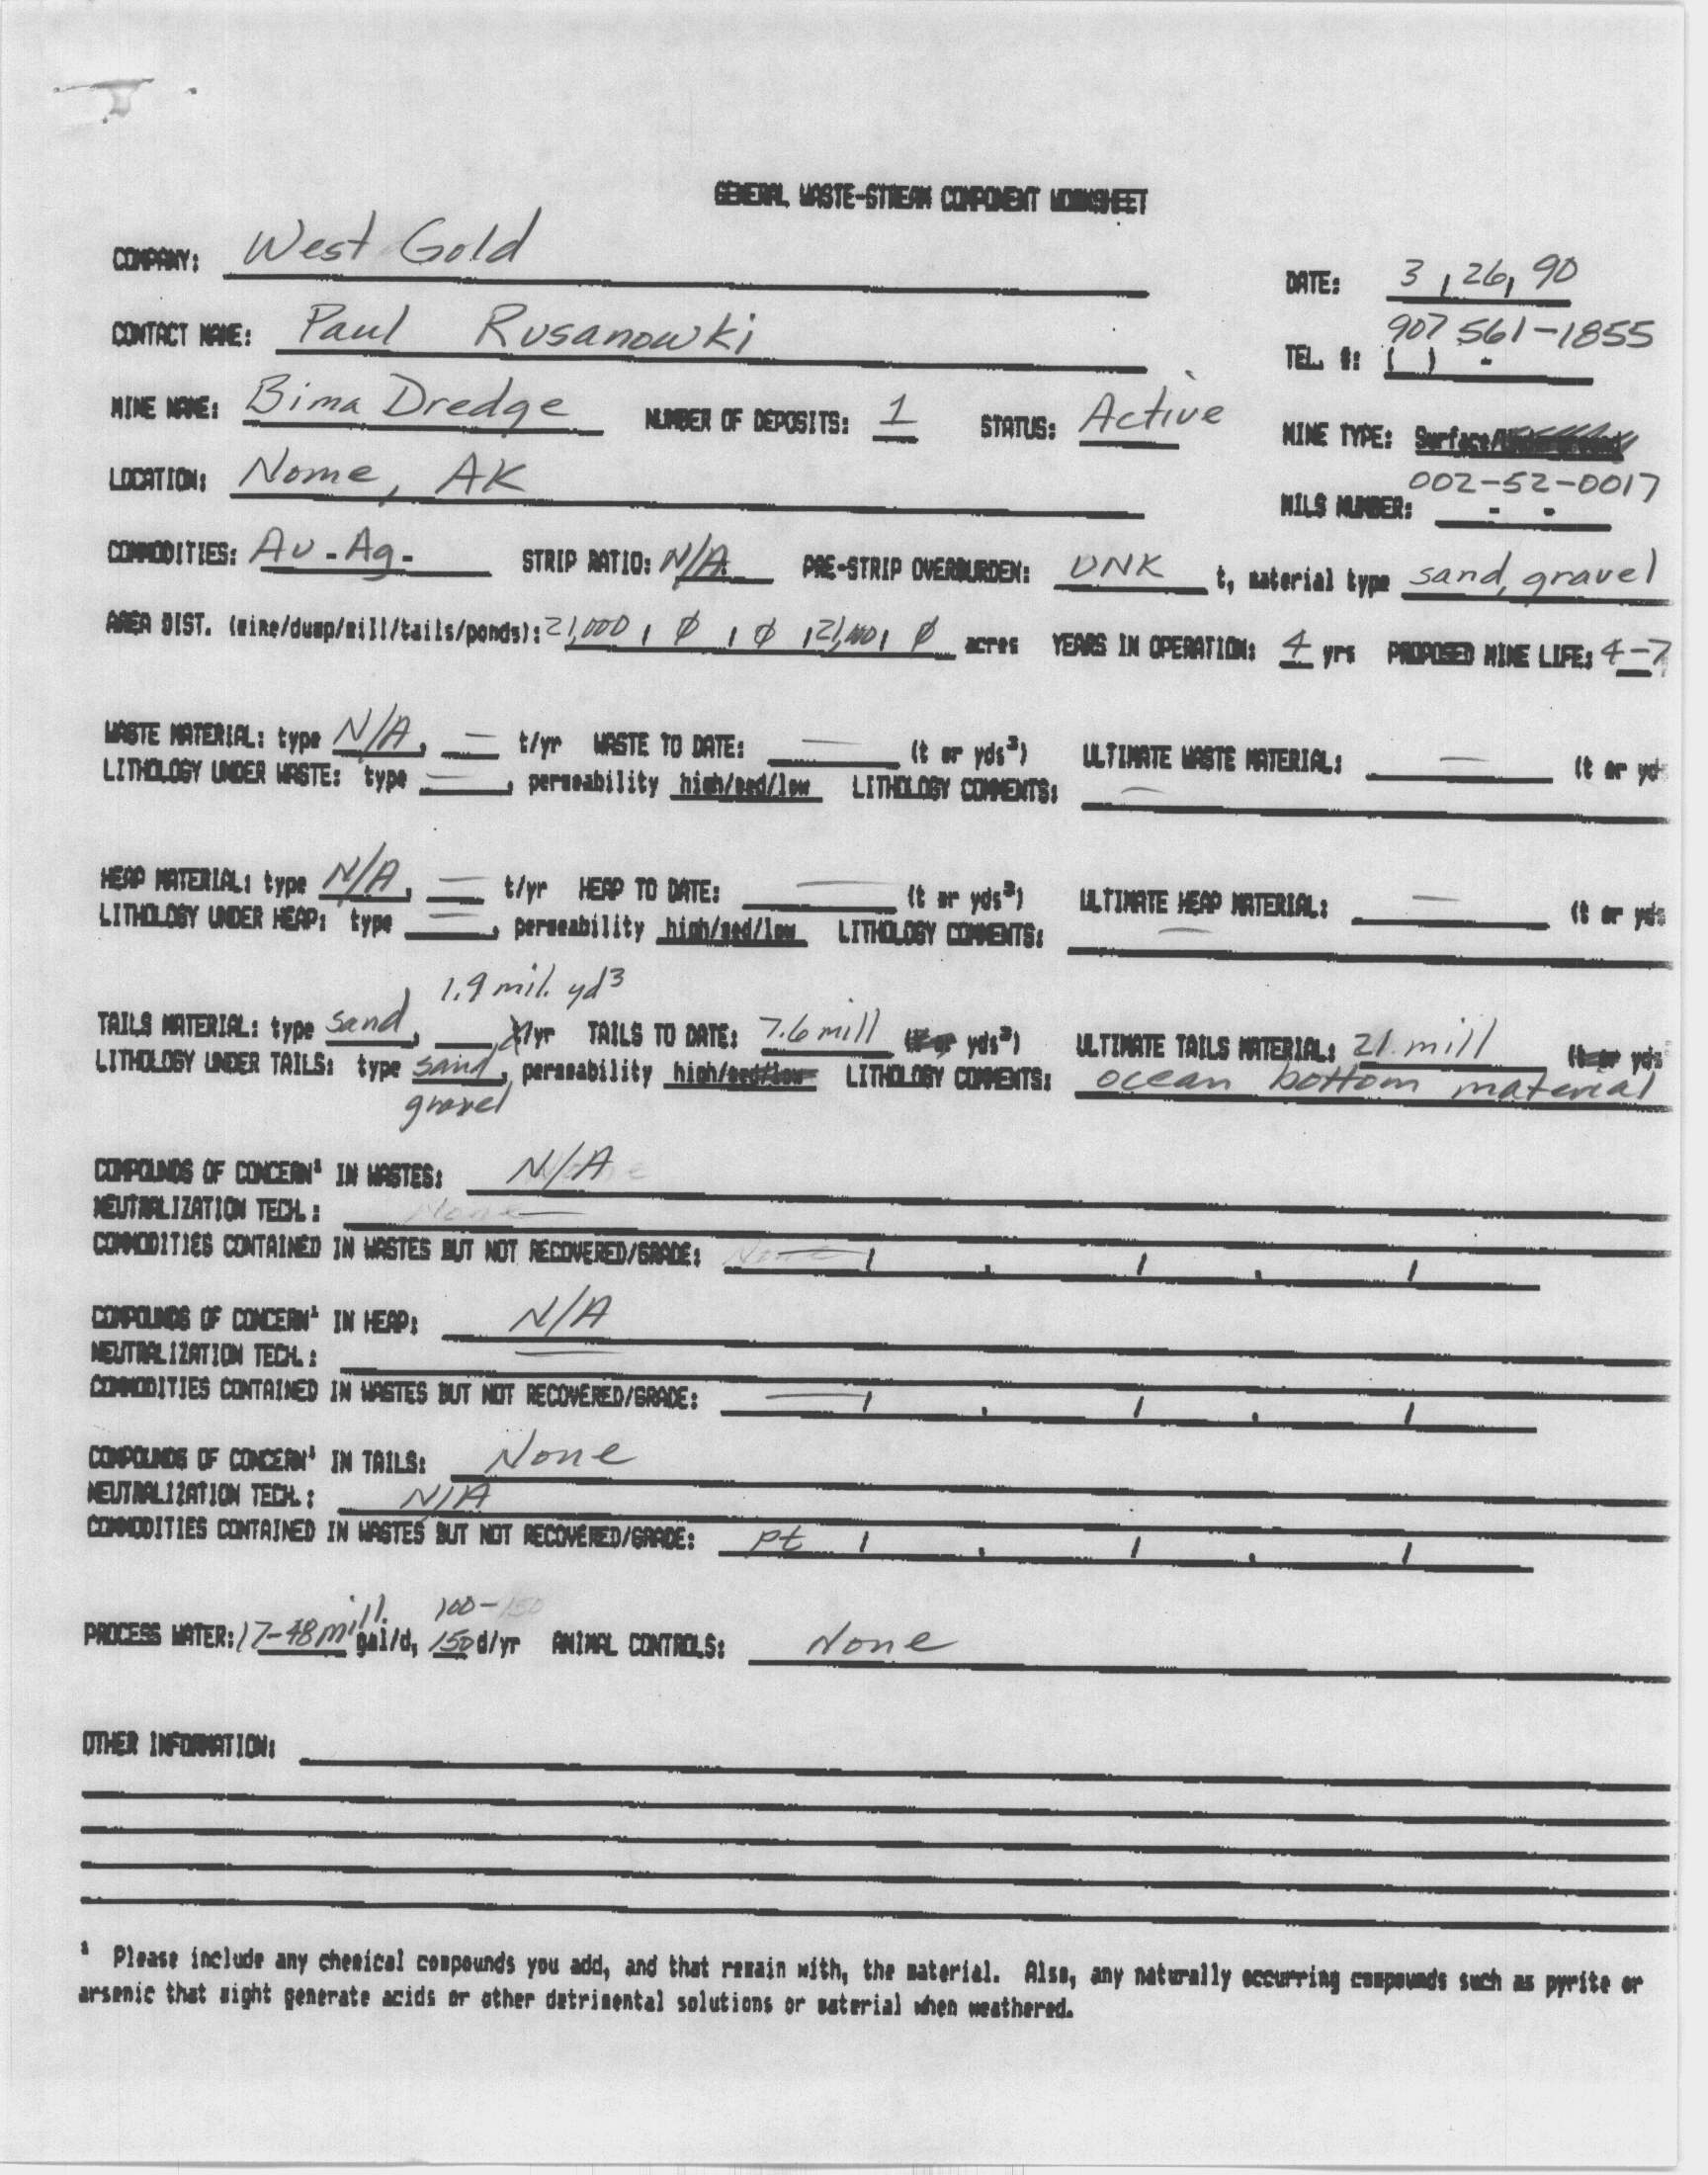 GENERAL WASTE-STREAM COMPONENT WORKSHEET
COMPANY: West Gold
DATE: 3 / 26 / 90
CONTACT NAME: Paul Rusanowski
907 561-1855
TEL. #: ( ) -
MINE NAME: Bima Dredge NUMBER OF DEPOSITS: 1 STATUS: Active
MINE TYPE: Surface/Underground
LOCATION: Nome, AK
002-52-0017
MILS NUMBER: - -
COMMODITIES: Au - Ag - STRIP RATIO: N/A PRE-STRIP OVERBURDEN: UNK t, material type sand, gravel
AREA DIST. (mine/dump/mill/tails/ponds): 21,000 / Ø / Ø / 21,000 / Ø acres YEARS IN OPERATION: 4 yrs PROPOSED MINE LIFE: 4-7
WASTE MATERIAL: type N/A, — t/yr WASTE TO DATE: — (t or yds³) ULTIMATE WASTE MATERIAL: — (t or yd
LITHOLOGY UNDER WASTE: type —, permeability high/med/low LITHOLOGY COMMENTS: —
HEAP MATERIAL: type N/A, — t/yr HEAP TO DATE: — (t or yds³) ULTIMATE HEAP MATERIAL: — (t or yds
LITHOLOGY UNDER HEAP: type —, permeability high/med/low LITHOLOGY COMMENTS: —
1.9 mil. yd3
TAILS MATERIAL: type sand, t/yr TAILS TO DATE: 7.6 mill (t or yds³) ULTIMATE TAILS MATERIAL: 21 mill (t or yds
LITHOLOGY UNDER TAILS: type sand, permeability high/med/low LITHOLOGY COMMENTS: ocean bottom material
gravel
COMPOUNDS OF CONCERN¹ IN WASTES: N/A
NEUTRALIZATION TECH.: —
COMMODITIES CONTAINED IN WASTES BUT NOT RECOVERED/GRADE: — / , / , /
COMPOUNDS OF CONCERN¹ IN HEAP: N/A
NEUTRALIZATION TECH.: —
COMMODITIES CONTAINED IN WASTES BUT NOT RECOVERED/GRADE: — / , / , /
COMPOUNDS OF CONCERN¹ IN TAILS: None
NEUTRALIZATION TECH.: N/A
COMMODITIES CONTAINED IN WASTES BUT NOT RECOVERED/GRADE: pt / , / , /
100-
PROCESS WATER: 17-48 mill. gal/d, 150 d/yr ANIMAL CONTROLS: None
OTHER INFORMATION:
¹ Please include any chemical compounds you add, and that remain with, the material. Also, any naturally occurring compounds such as pyrite or
arsenic that might generate acids or other detrimental solutions or material when weathered.